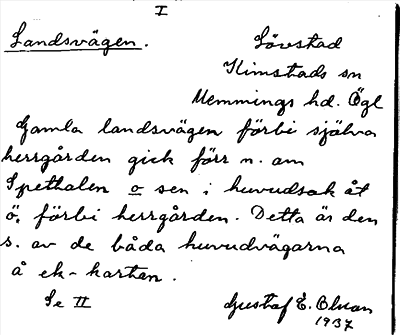 I
Landsvägen. Lövstad
Kimstads sn
Memmings hd. Ögl
Gamla landsvägen förbi själva
herrgården gick förr n. om
Spettalen o sen i huvudsak åt
ö. förbi herrgården. Detta är den
s. av de båda huvudvägarna
å ek-kartan.
Se II Gustaf E. Olson
1937